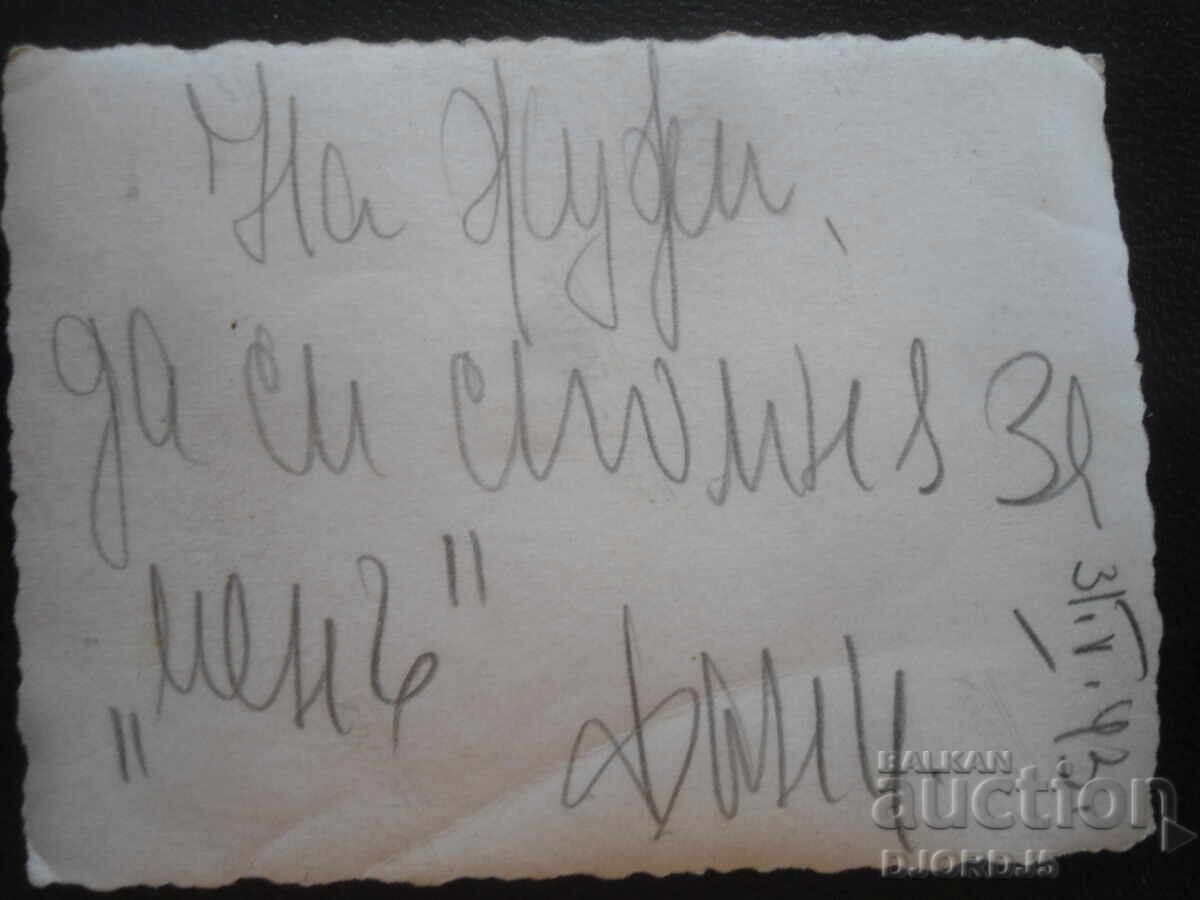 На Жужи,
да си спомня за
„менъ"
3/IV.43
BALKAN
auction
DJORDJ5